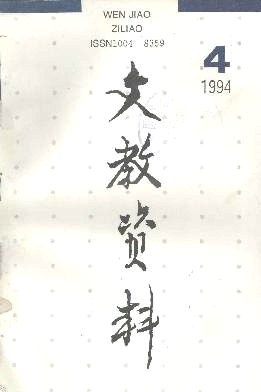 WEN JIAO
ZILIAO
ISSN1004-8359
4
1994
文教资料